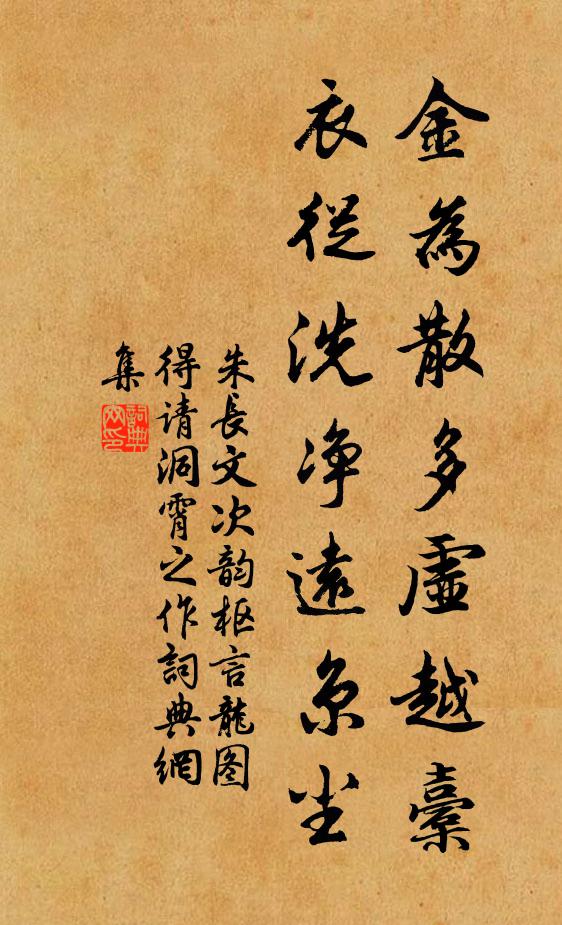 金為散多虛越橐
衣從洗净遠京尘
朱長文次韵枢言龍图
得请洞霄之作詞典網
集
詞典网印